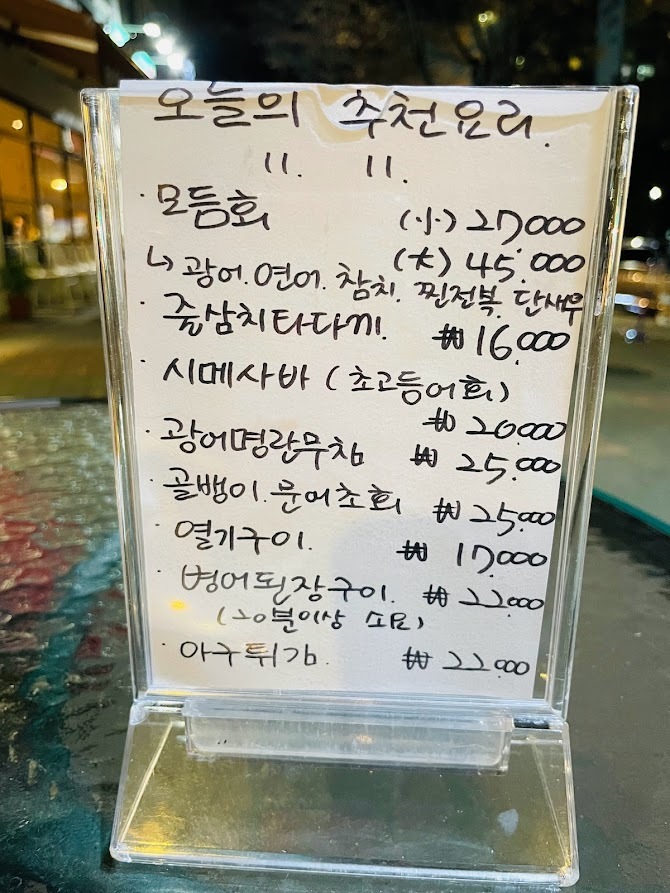 오늘의 추천요리.
11. 11.
· 모듬회 (小) 27,000
(大) 45,000
↳ 광어. 연어. 참치. 찐전복. 단새우
· 줄삼치타다끼. ₩ 16,000
· 시메사바 (초고등어회)
₩ 20,000
· 광어명란무침 ₩ 25,000
· 골뱅이. 문어초회 ₩ 25,000
· 열기구이. ₩ 17,000
· 병어된장구이. ₩ 22,000
(20분이상 소요)
· 아구튀김. ₩ 22,000